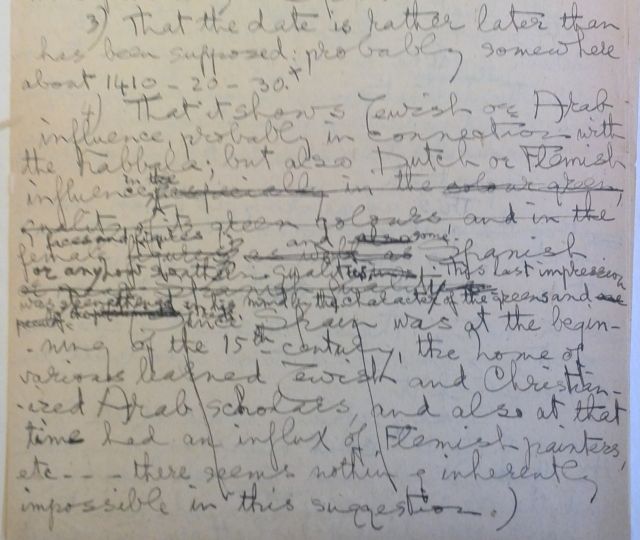 3) That the date is rather later than
has been supposed: probably somewhere
about 1410 - 20 - 30.+
4) That it shows Jewish or Arab
influence, probably in connection with
the Kabbala; but also Dutch or Flemish
influence, in the especially in the colour green,
quality of its green colours and in the
faces and figures and also some
female figures as well as Spanish
or anyhow southern qualities. This last impression
was strengthened in his mind by the character of the greens and
Since Spain was at the begin-
-ning of the 15th century, the home of
various learned Jewish and Christian-
-ized Arab scholars, and also at that
time had an influx of Flemish painters,
etc - - - there seems nothing inherently
impossible in this suggestion.)